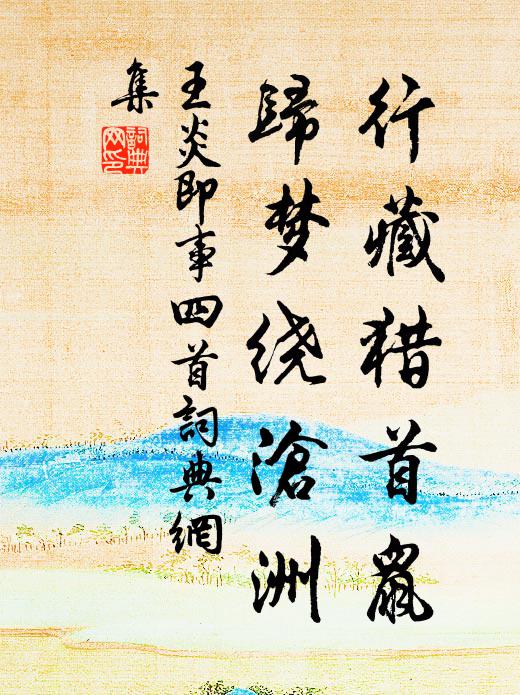 行藏猎首鼠
歸梦绕滄洲
王炎即事四首詞典網
集
詞典
网印